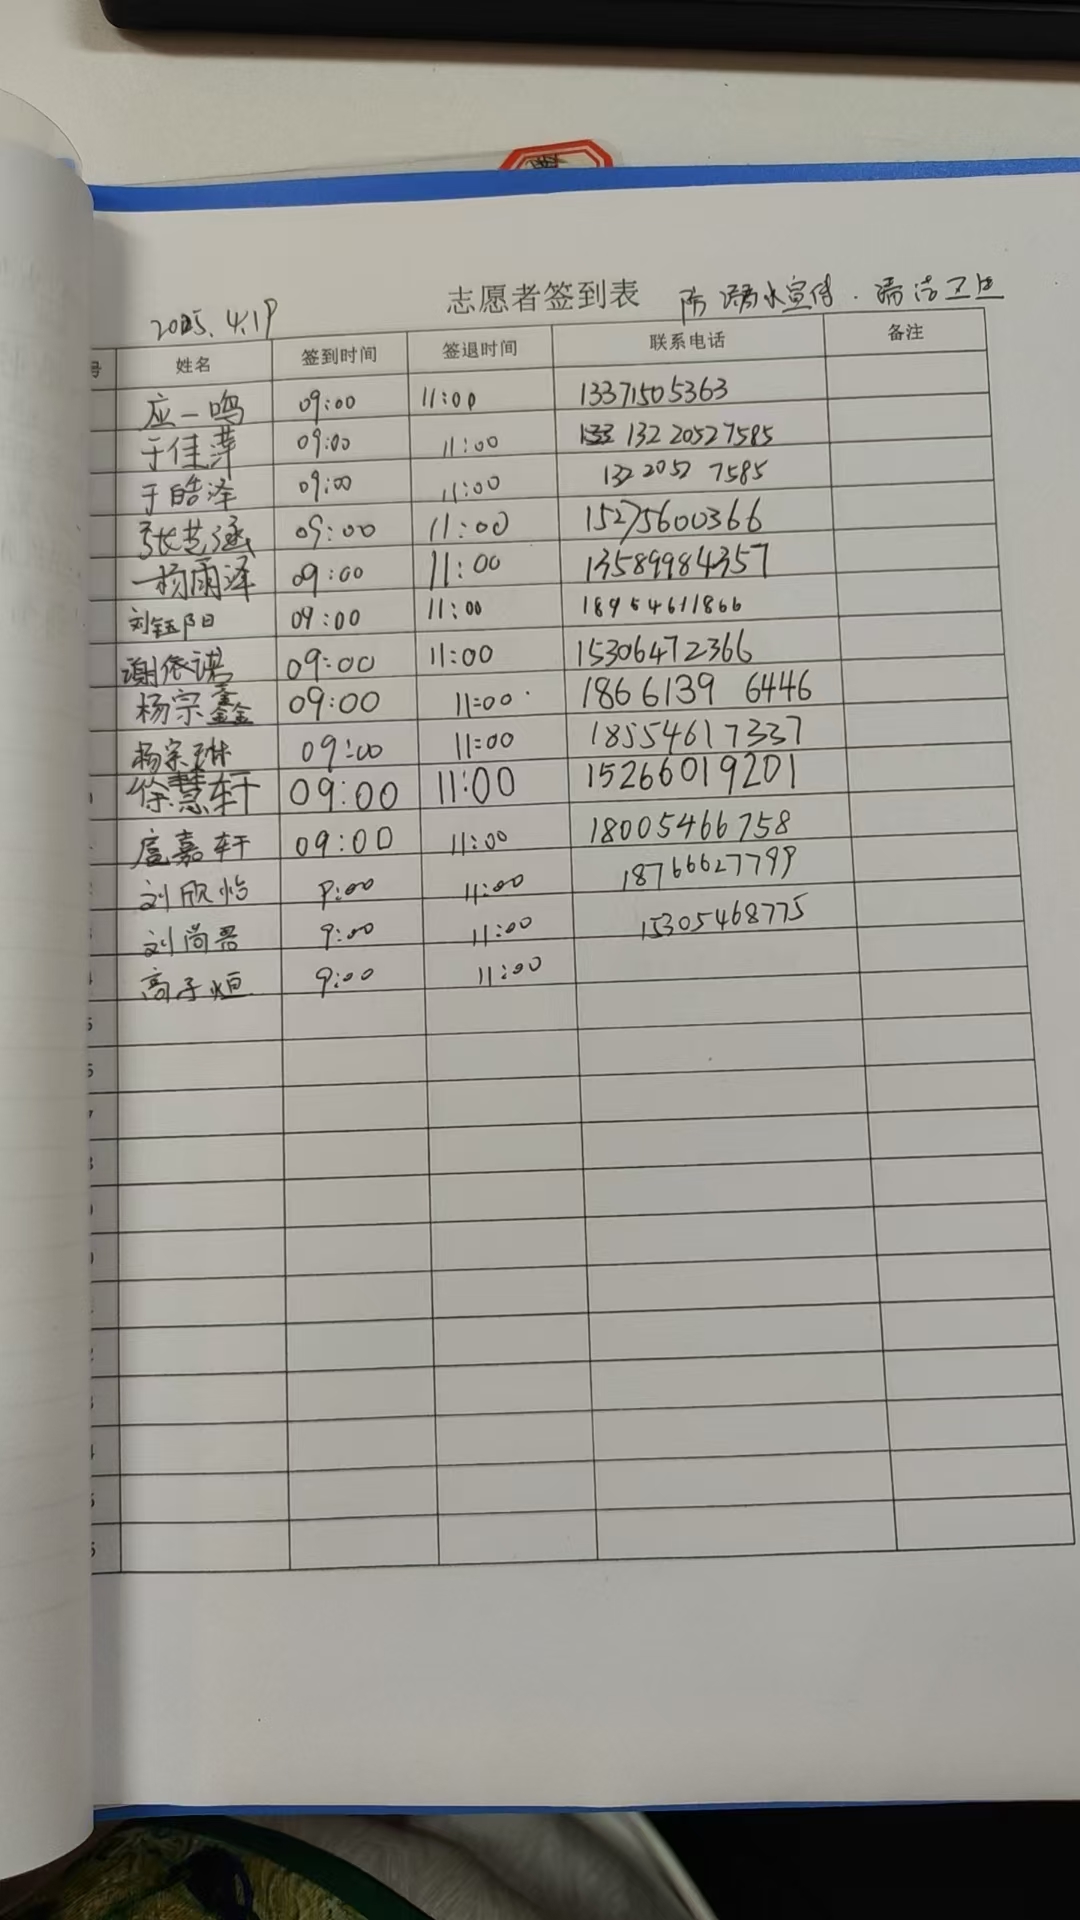 志愿者签到表 防溺水宣传.清洁卫生
2025.4.19
号 姓名 签到时间 签退时间 联系电话 备注
应一鸣 09:00 11:00 13371505363
于佳萍 09:00 11:00 132 20527585
于皓泽 09:00 11:00 132 2052 7585
张艺涵 09:00 11:00 15275600366
杨雨泽 09:00 11:00 13589984357
刘钰阳 09:00 11:00 18954611866
谢依诺 09:00 11:00 15306472366
杨宗鑫 09:00 11:00 186 6139 6446
杨宗琳 09:00 11:00 18554617337
徐慧轩 09:00 11:00 15266019201
扈嘉轩 09:00 11:00 18005466758
刘欣怡 9:00 11:00 18766627799
刘尚 9:00 11:00 15305468775
高子烜 9:00 11:00